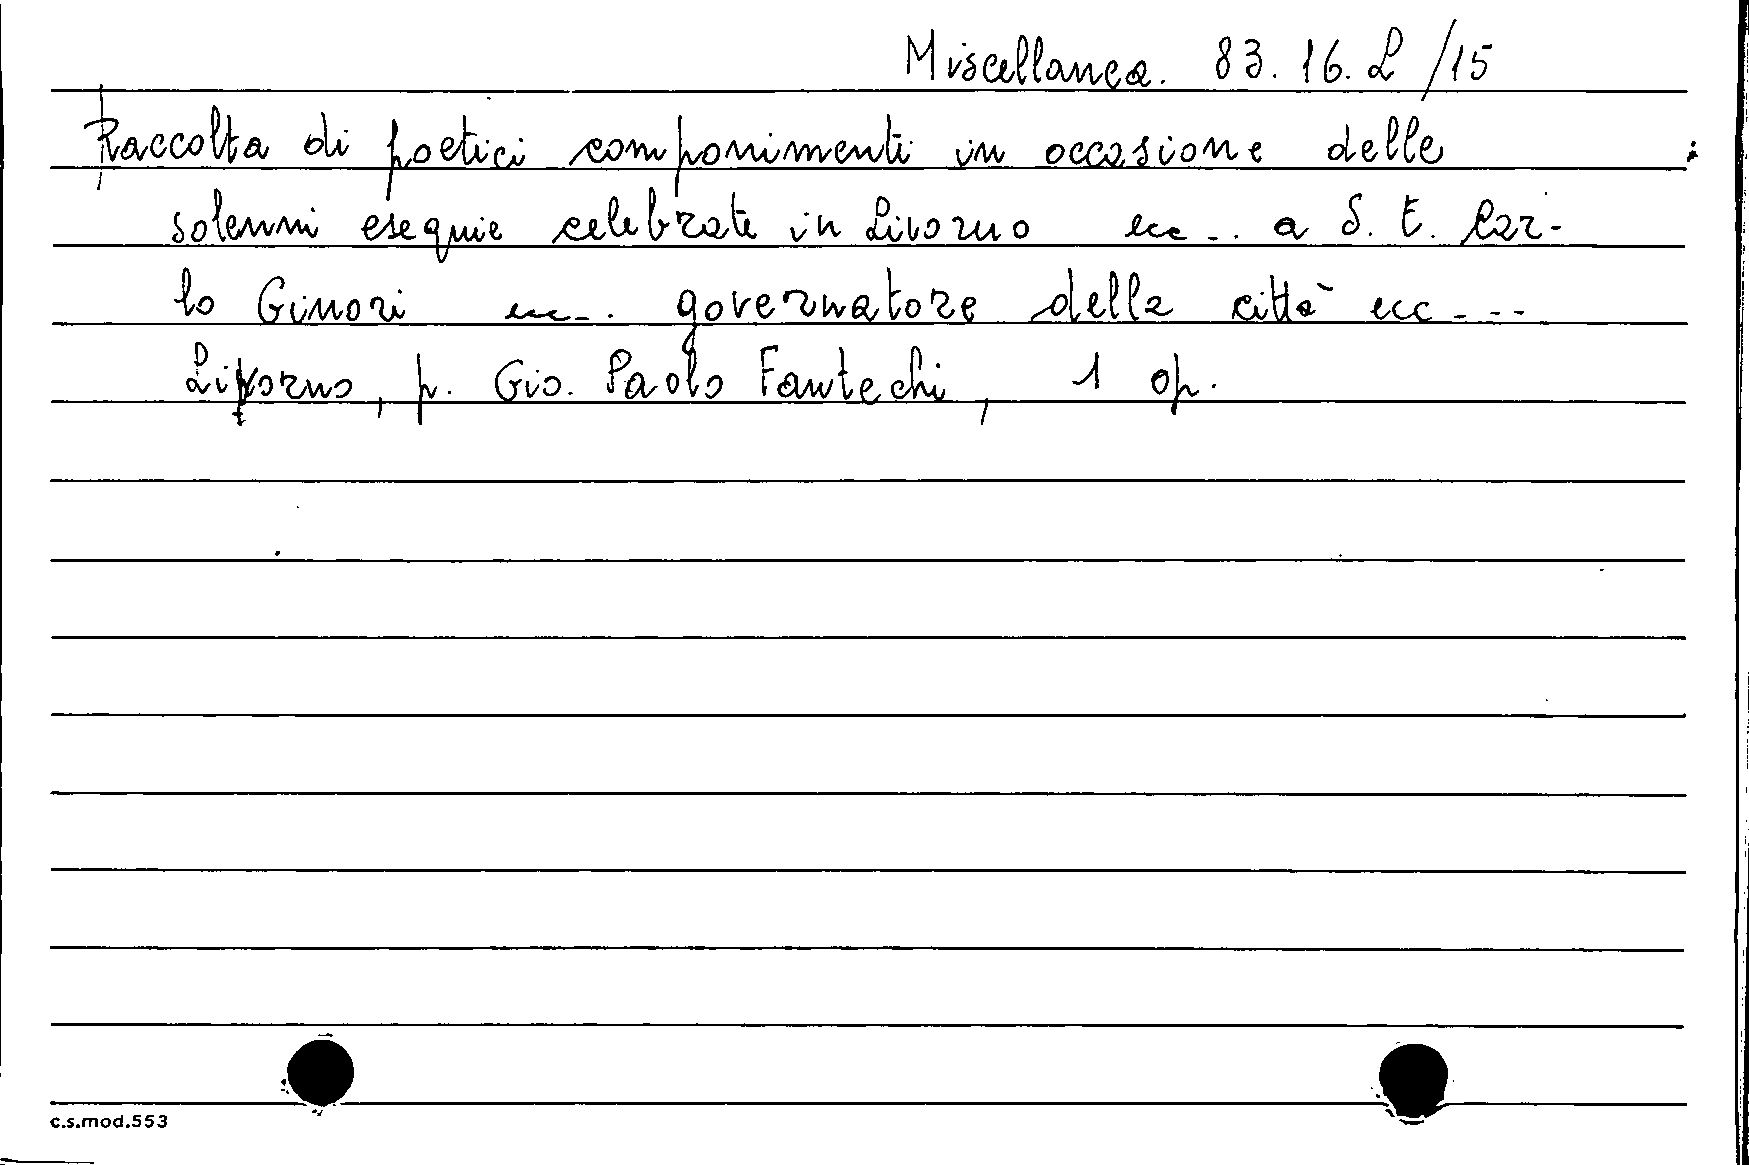 Miscellanea. 83. 16. L /15
Raccolta di poetici componimenti in occasione delle
solenni esequie celebrate in Livorno ecc... a S. E. Car-
lo Ginori ecc... governatore della città ecc....
Livorno, p. Gio. Paolo Fantechi, 1 op.
c.s.mod.553